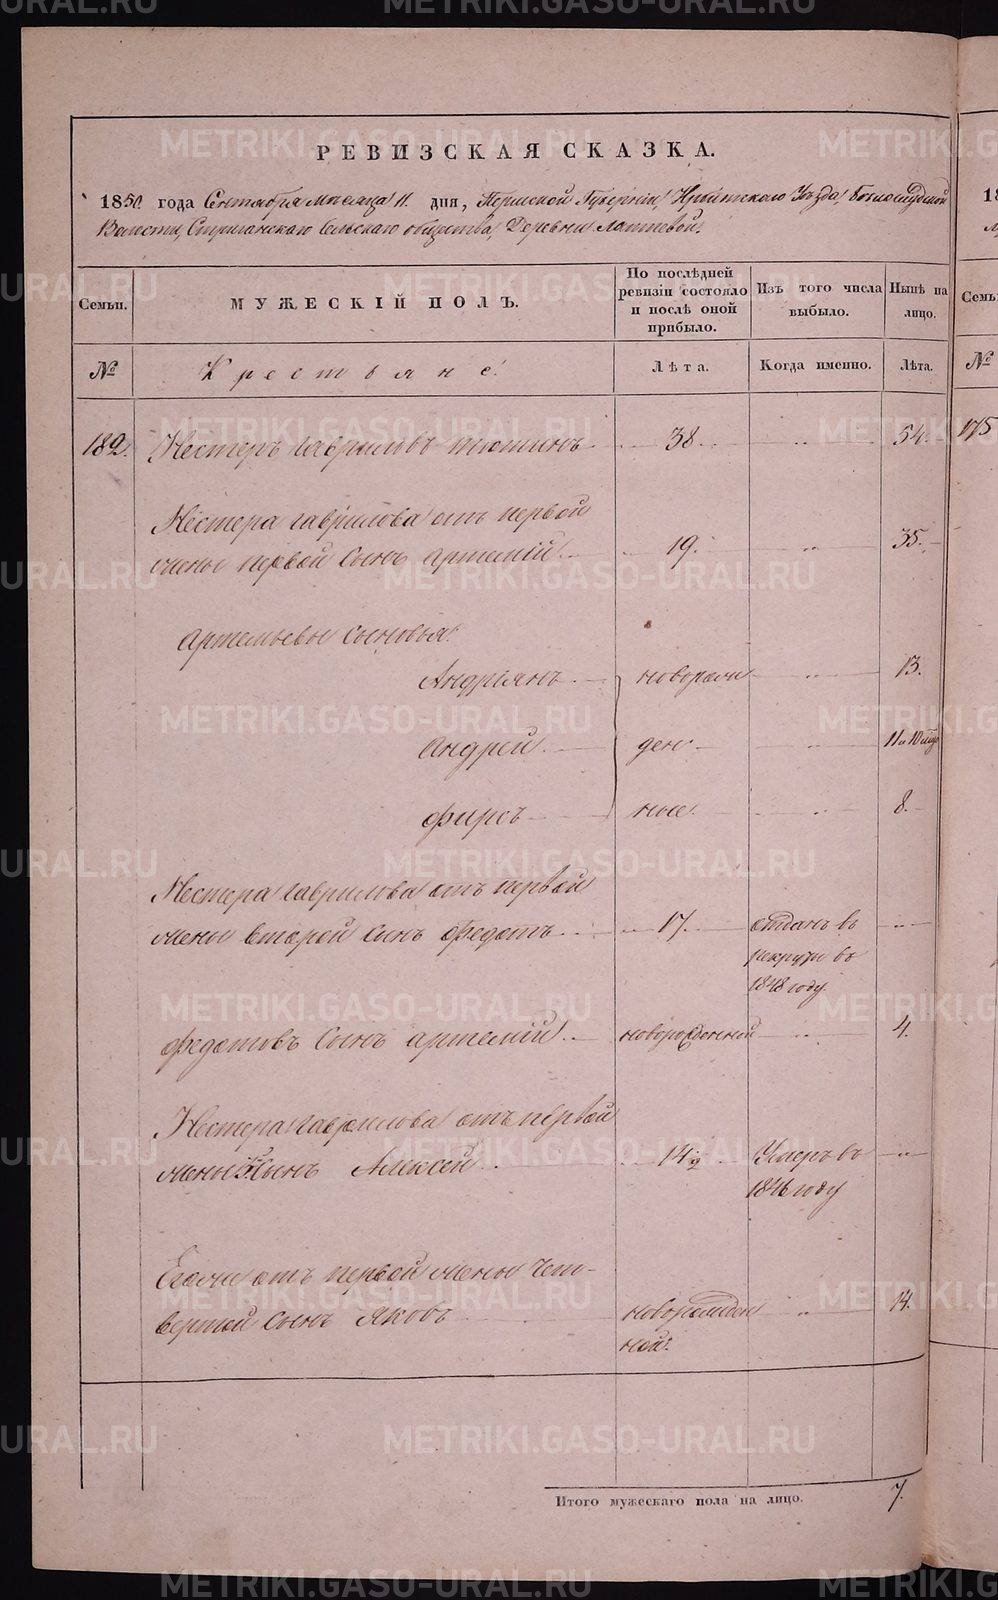 РЕВИЗСКАЯ СКАЗКА.
1850 года Сентября месяца 11. дня, Пермской Губерніи, Ирбитскаго Уѣзда,
Волости, Стриганскаго Сельскаго общества, Деревни Лаптевой.
Семьи.
МУЖЕСКІЙ ПОЛЪ.
По послѣдней ревизіи состояло и послѣ оной прибыло.
Изъ того числа выбыло.
Нынѣ на лицо.
Семьи
№
Крестьяне
Лѣта.
Когда именно.
Лѣта.
№
182. Нестеръ Гавриловъ 38. " 54.
175
Нестера Гаврилова отъ первой
жены первой Сынъ Артемій 19. " 35.
Артемьевы Сыновья:
Андріянъ новорож " 13.
Андрей ден " 11 и 10 мѣс
Фирсъ ные. " 8.
Нестера Гаврилова отъ первой
жены второй Сынъ Федотъ 17. отданъ въ "
рекруты въ
1848 году
Федотовъ Сынъ Артемій новорожденный " 4.
Нестера Гаврилова отъ первой
жены 3й Сынъ Алексей 14½ Умеръ въ "
1846 году
Егоже отъ первой жены Чет-
вертой Сынъ Яковъ новорожден " 14.
ной.
Итого мужескаго пола на лицо. 7.
METRIKI.GASO-URAL.RU